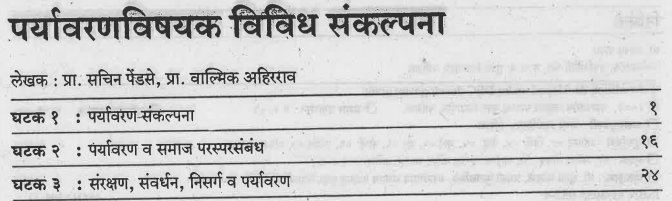 पर्यावरणविषयक विविध संकल्पना
लेखक : प्रा. सचिन पेंडसे, प्रा. वाल्मिक अहिरराव
घटक १ : पर्यावरण संकल्पना १
घटक २ : पर्यावरण व समाज परस्परसंबंध १६
घटक ३ : संरक्षण, संवर्धन, निसर्ग व पर्यावरण २४